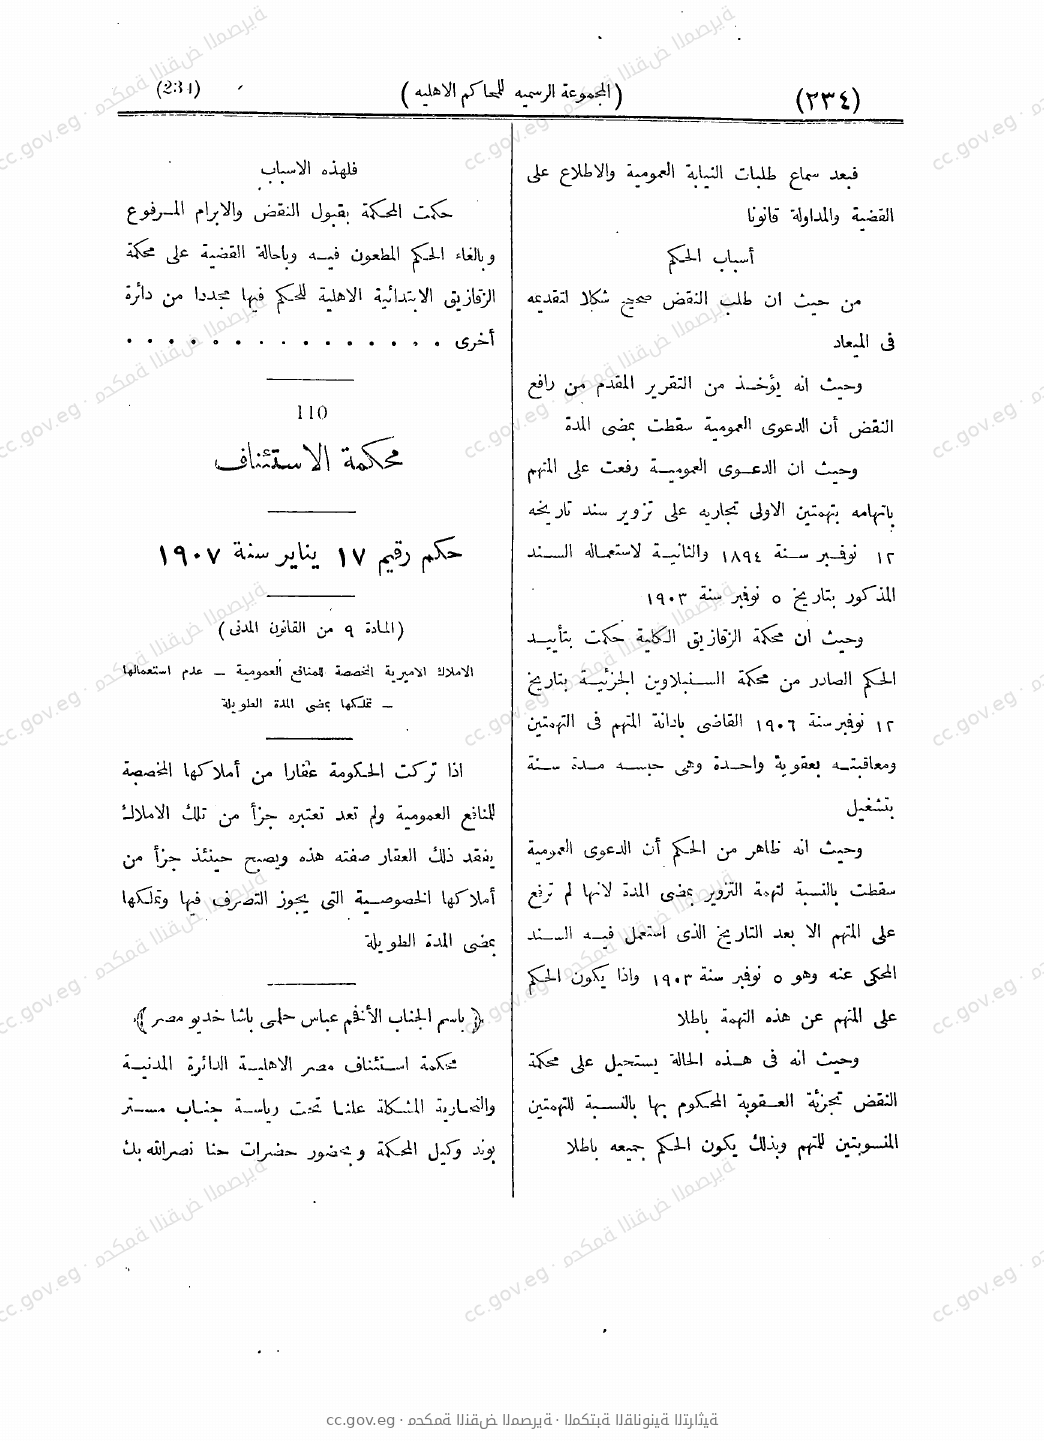 (٢٣٤)
(المجموعة الرسميه للمحاكم الاهليه)
(234)
فبعد سماع طلبات النيابة العمومية والاطلاع على
القضية والمداولة قانونا
أسباب الحكم
من حيث ان طلب النقض صحيح شكلا لتقديمه
فى الميعاد
وحيث انه يؤخذ من التقرير المقدم من رافع
النقض أن الدعوى العمومية سقطت بمضى المدة
وحيث ان الدعوى العمومية رفعت على المتهم
باتهامه بتهمتين الاولى تجاريه على تزوير سند تاريخه
١٢ نوفمبر سنة ١٨٩٤ والثانية لاستعماله السند
المذكور بتاريخ ٥ نوفمبر سنة ١٩٠٣
وحيث ان محكمة الزقازيق الكلية حكمت بتأييد
الحكم الصادر من محكمة السنبلاوين الجزئية بتاريخ
١٢ نوفمبر سنة ١٩٠٦ القاضى بادانة المتهم فى التهمتين
ومعاقبته بعقوبة واحدة وهى حبسه مدة سنة
بتشغيل
وحيث انه ظاهر من الحكم أن الدعوى العمومية
سقطت بالنسبة لتهمة التزوير بمضى المدة لانها لم ترفع
على المتهم الا بعد التاريخ الذى استعمل فيه السند
المحكى عنه وهو ٥ نوفمبر سنة ١٩٠٣ واذا يكون الحكم
على المتهم عن هذه التهمة باطلا
وحيث انه فى هذه الحالة يستحيل على محكمة
النقض تجزئة العقوبة المحكوم بها بالنسبة للتهمتين
المنسوبتين للمتهم وبذلك يكون الحكم جميعه باطلا
فلهذه الاسباب
حكمت المحكمة بقبول النقض والابرام المرفوع
وبالغاء الحكم المطعون فيه وباحالة القضية على محكمة
الزقازيق الابتدائية الاهلية للحكم فيها مجددا من دائرة
أخرى . . . . . . . . . . . . . .
110
محكمة الاستئناف
حكم رقيم ١٧ يناير سنة ١٩٠٧
(المادة ٩ من القانون المدنى)
الاملاك الاميرية المخصصة للمنافع العمومية ـ عدم استعمالها
ـ تملكها بمضى المدة الطويلة
اذا تركت الحكومة عقارا من أملاكها المخصصة
للمنافع العمومية ولم تعد تعتبره جزأ من تلك الاملاك
يفقد ذلك العقار صفته هذه ويصبح حينئذ جزأ من
أملاكها الخصوصية التى يجوز التصرف فيها وتملكها
بمضى المدة الطويلة
﴿باسم الجناب الأفخم عباس حلمى باشا خديو مصر﴾
محكمة استئناف مصر الاهلية الدائرة المدنية
والتجارية المشكلة علنا تحت رياسة جناب مستر
بوند وكيل المحكمة وبحضور حضرات حنا نصرالله بك
cc.gov.eg · محكمة النقض المصرية · المكتبة القانونية التراثية